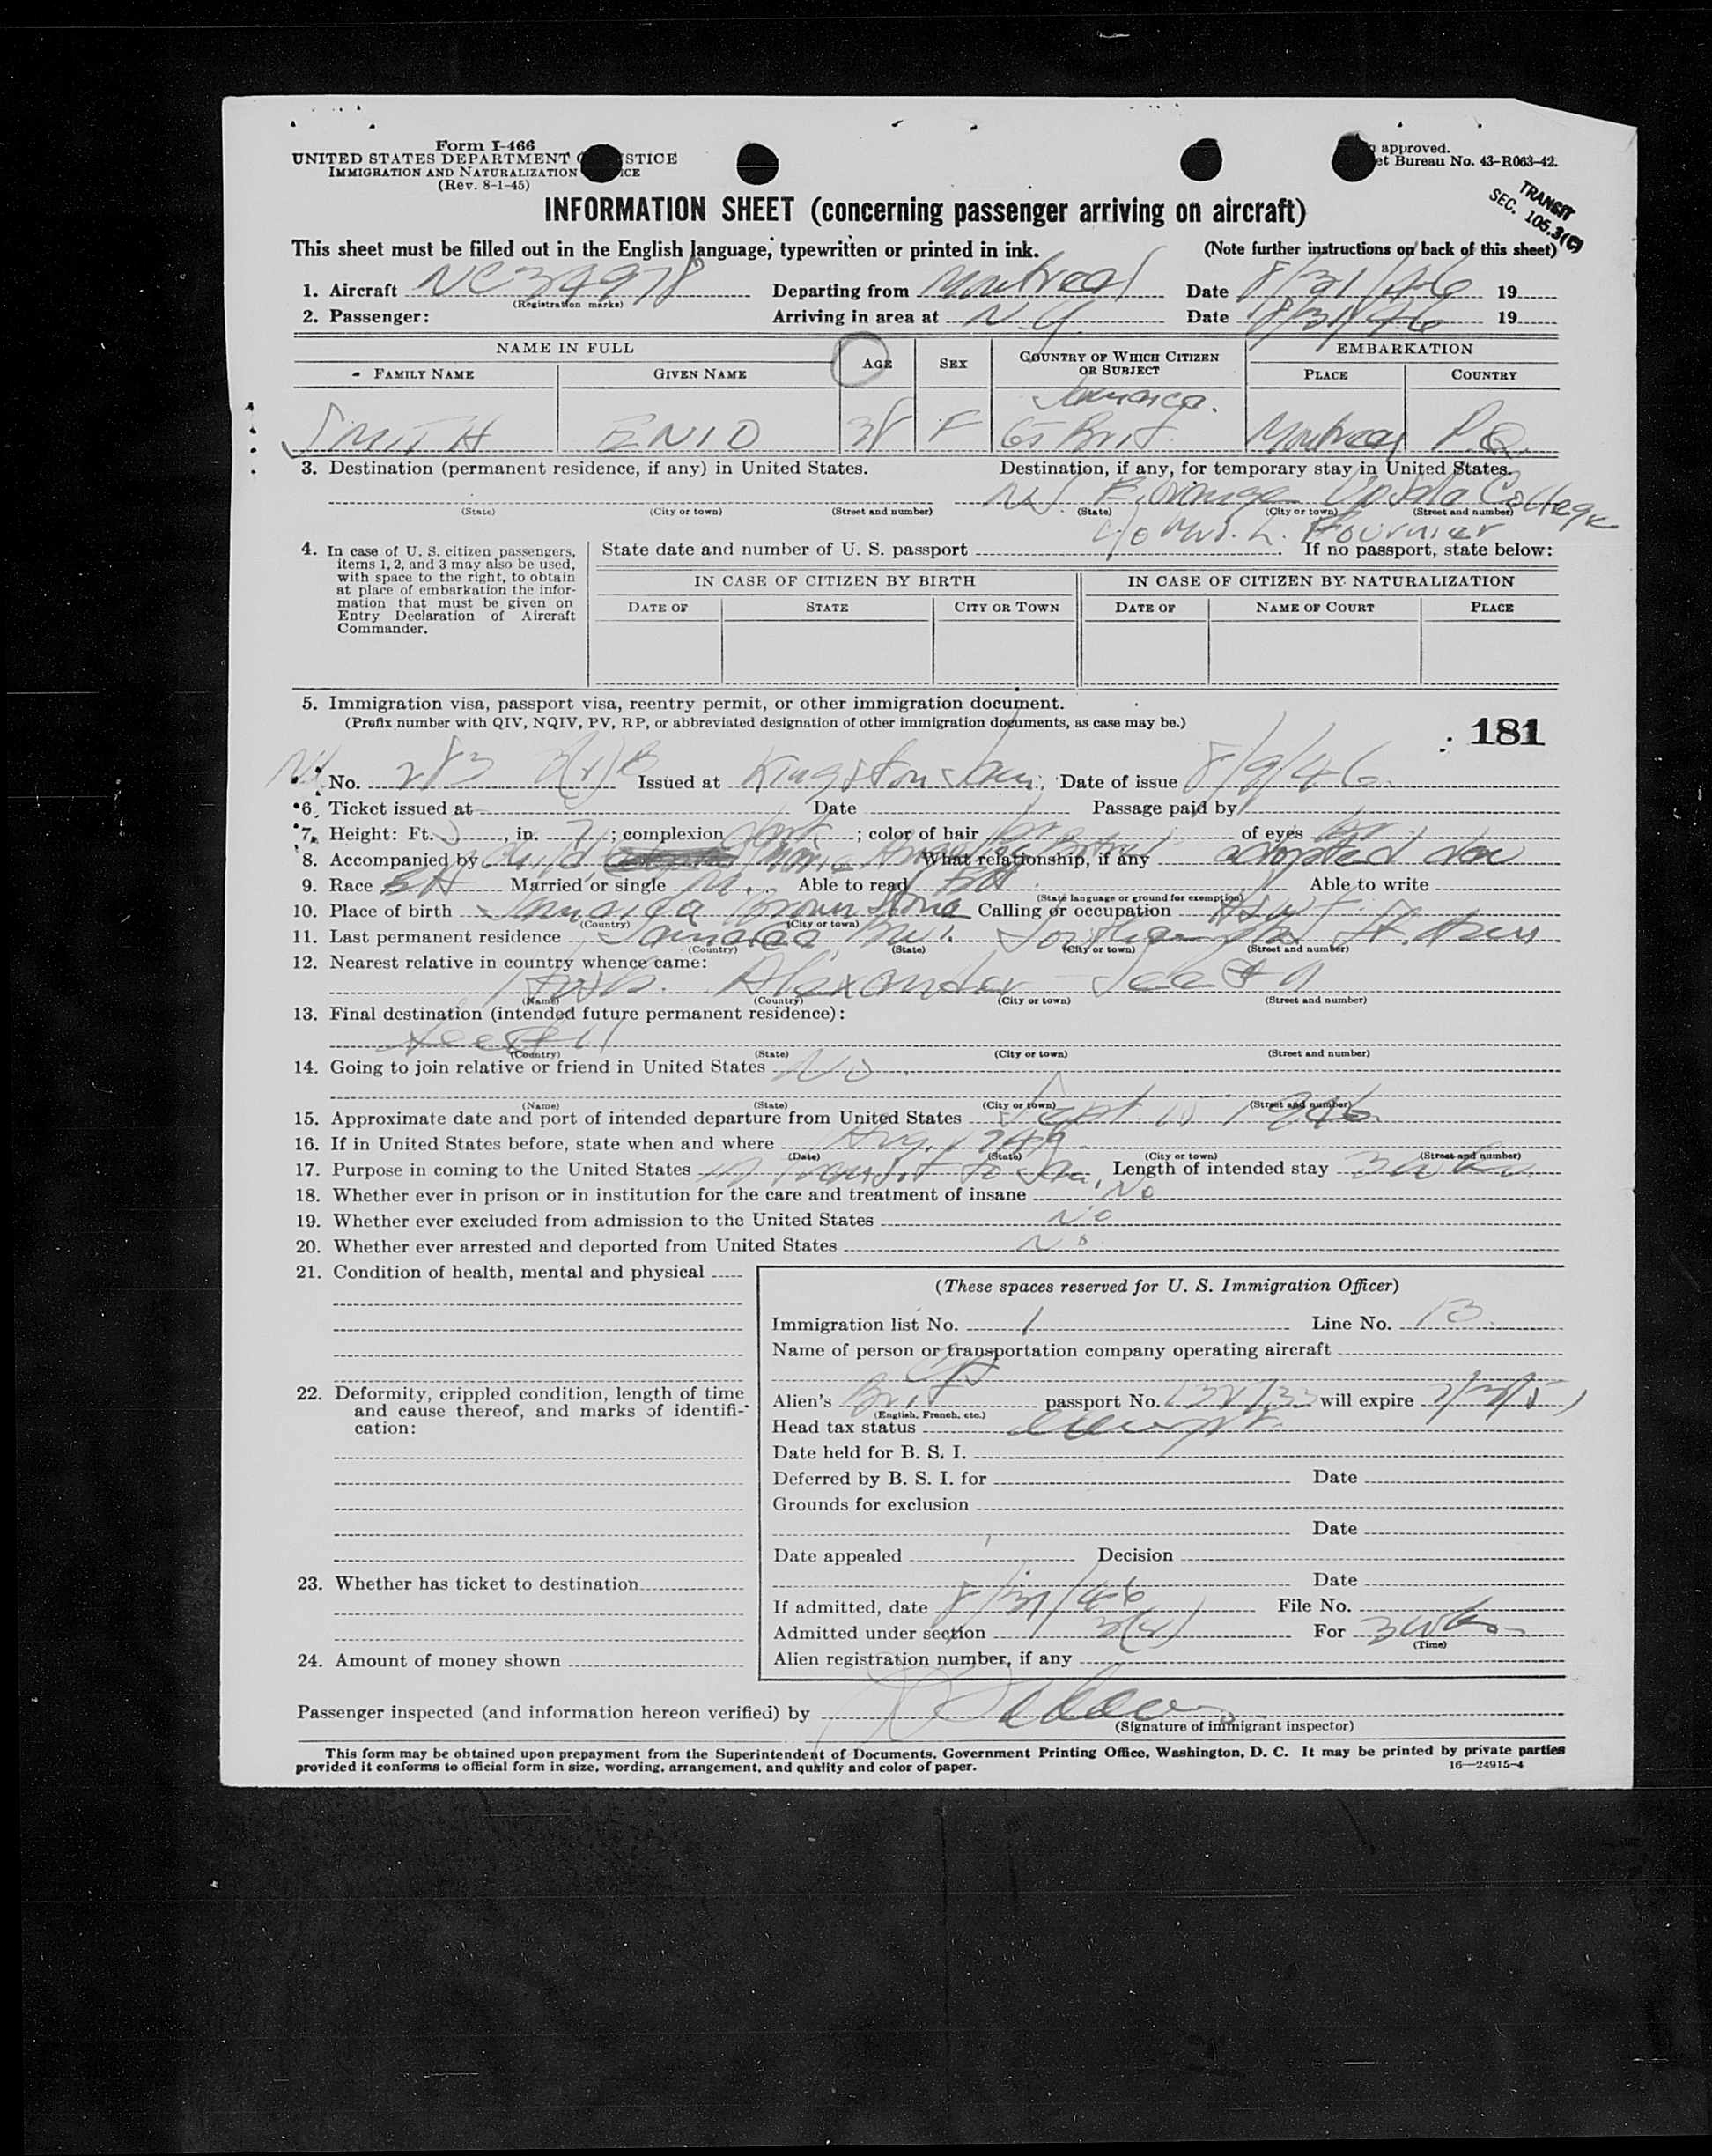 Form I-466
UNITED STATES DEPARTMENT STICE
IMMIGRATION AND NATURALIZATION ICE
(Rev. 8-1-45)
approved.
et Bureau No. 43-R063-42.
TRANSIT
SEC. 105.3(C)
INFORMATION SHEET (concerning passenger arriving on aircraft)
This sheet must be filled out in the English language, typewritten or printed in ink. (Note further instructions on back of this sheet)
1. Aircraft NC34978 Departing from Montreal Date 8/31/46 19
(Registration marks)
2. Passenger: Arriving in area at N.Y. Date 8/31/46 19
NAME IN FULL AGE SEX COUNTRY OF WHICH CITIZEN OR SUBJECT EMBARKATION
FAMILY NAME GIVEN NAME PLACE COUNTRY
Jamaica.
SMITH ENID 38 F Brit. Montreal P.Q.
3. Destination (permanent residence, if any) in United States. Destination, if any, for temporary stay in United States.
N.J. E. Orange Upsala College
(State) (City or town) (Street and number) (State) (City or town) (Street and number)
c/o Mrs. L. Fournier
4. In case of U. S. citizen passengers, items 1, 2, and 3 may also be used, with space to the right, to obtain at place of embarkation the information that must be given on Entry Declaration of Aircraft Commander.
State date and number of U. S. passport If no passport, state below:
IN CASE OF CITIZEN BY BIRTH IN CASE OF CITIZEN BY NATURALIZATION
DATE OF STATE CITY OR TOWN DATE OF NAME OF COURT PLACE
5. Immigration visa, passport visa, reentry permit, or other immigration document.
(Prefix number with QIV, NQIV, PV, RP, or abbreviated designation of other immigration documents, as case may be.)
181
No. 283 Issued at Kingston Jam. Date of issue 8/9/46
6. Ticket issued at Date Passage paid by
7. Height: Ft. 5, in. 7; complexion dark; color of hair br of eyes br
8. Accompanied by child, What relationship, if any adopted
9. Race Married or single M. Able to read Able to write
(State language or ground for exemption)
10. Place of birth Jamaica Brown Calling or occupation Hswf.
(Country) (City or town)
11. Last permanent residence Jamaica
(Country) (State) (City or town) (Street and number)
12. Nearest relative in country whence came:
Husb. Alexander See # 11
(Name) (Country) (City or town) (Street and number)
13. Final destination (intended future permanent residence):
See # 11
(Country) (State) (City or town) (Street and number)
14. Going to join relative or friend in United States No
(Name) (State) (City or town) (Street and number)
15. Approximate date and port of intended departure from United States Sept. 10 1946
16. If in United States before, state when and where Aug.
(Date) (State) (City or town) (Street and number)
17. Purpose in coming to the United States in transit to Jam. Length of intended stay 3 wks
18. Whether ever in prison or in institution for the care and treatment of insane No
19. Whether ever excluded from admission to the United States No
20. Whether ever arrested and deported from United States No
21. Condition of health, mental and physical
22. Deformity, crippled condition, length of time and cause thereof, and marks of identification:
23. Whether has ticket to destination
24. Amount of money shown
(These spaces reserved for U. S. Immigration Officer)
Immigration list No. 1 Line No. 13
Name of person or transportation company operating aircraft
Alien's Brit passport No. will expire
(English, French, etc.)
Head tax status exempt
Date held for B. S. I.
Deferred by B. S. I. for Date
Grounds for exclusion
Date
Date appealed Decision
Date
If admitted, date 8/31/46 File No.
Admitted under section 3(2) For 3 wks
(Time)
Alien registration number, if any
Passenger inspected (and information hereon verified) by
(Signature of immigrant inspector)
This form may be obtained upon prepayment from the Superintendent of Documents, Government Printing Office, Washington, D. C. It may be printed by private parties
provided it conforms to official form in size, wording, arrangement, and quality and color of paper. 16—24915-4